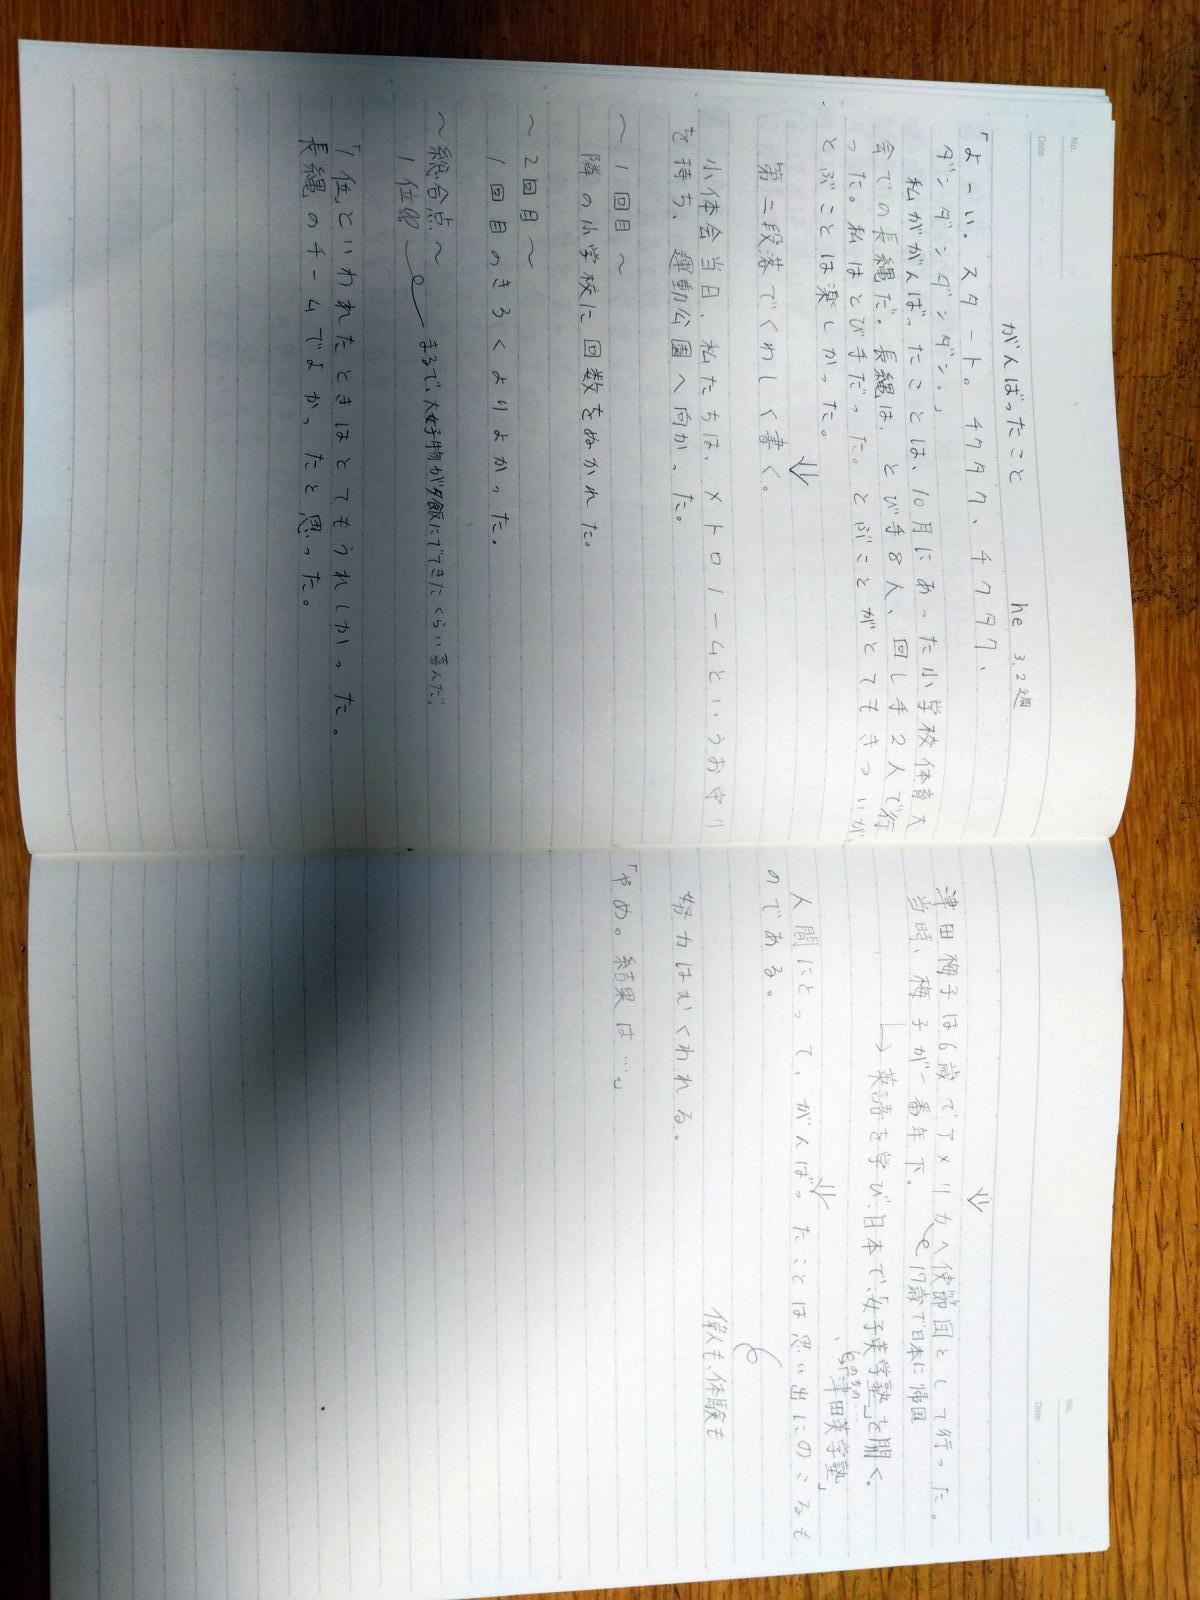 No.
Date
がんばったこと he 3.2週
「よーい。スタート。チクタク、チクタク、
ダンダンダンダン。」
私ががんばったことは、10月にあった小学校体育大
会での長縄だ。長縄は、とび手8人、回し手2人で行
った。私はとび手だった。とぶことがとてもきついが、
とぶことは楽しかった。
⇓
第二段落でくわしく書く。
小体会当日、私たちは、メトロノームというお守り
を持ち、運動公園へ向かった。
〜1回目〜
隣の小学校に回数をぬかれた。
〜2回目〜
1回目のきろくよりよかった。
〜総合点〜
1位!!! まるで、大好物が夕飯にでてきたくらい喜んだ。
「1位」といわれたときはとてもうれしかった。
長縄のチームでよかったと思った。
No.
Date
⇓
津田梅子は6歳でアメリカへ使節団として行った。
当時、梅子が一番年下。 17歳で日本に帰国
→英語を学び、日本で、「女子英学塾」を開く。
のちの…
「津田英学塾」
⇓
人間にとって、がんばったことは思い出にのこるも
のである。
偉人も、体験も
努力はむくわれる。
「やめ。結果は…。」